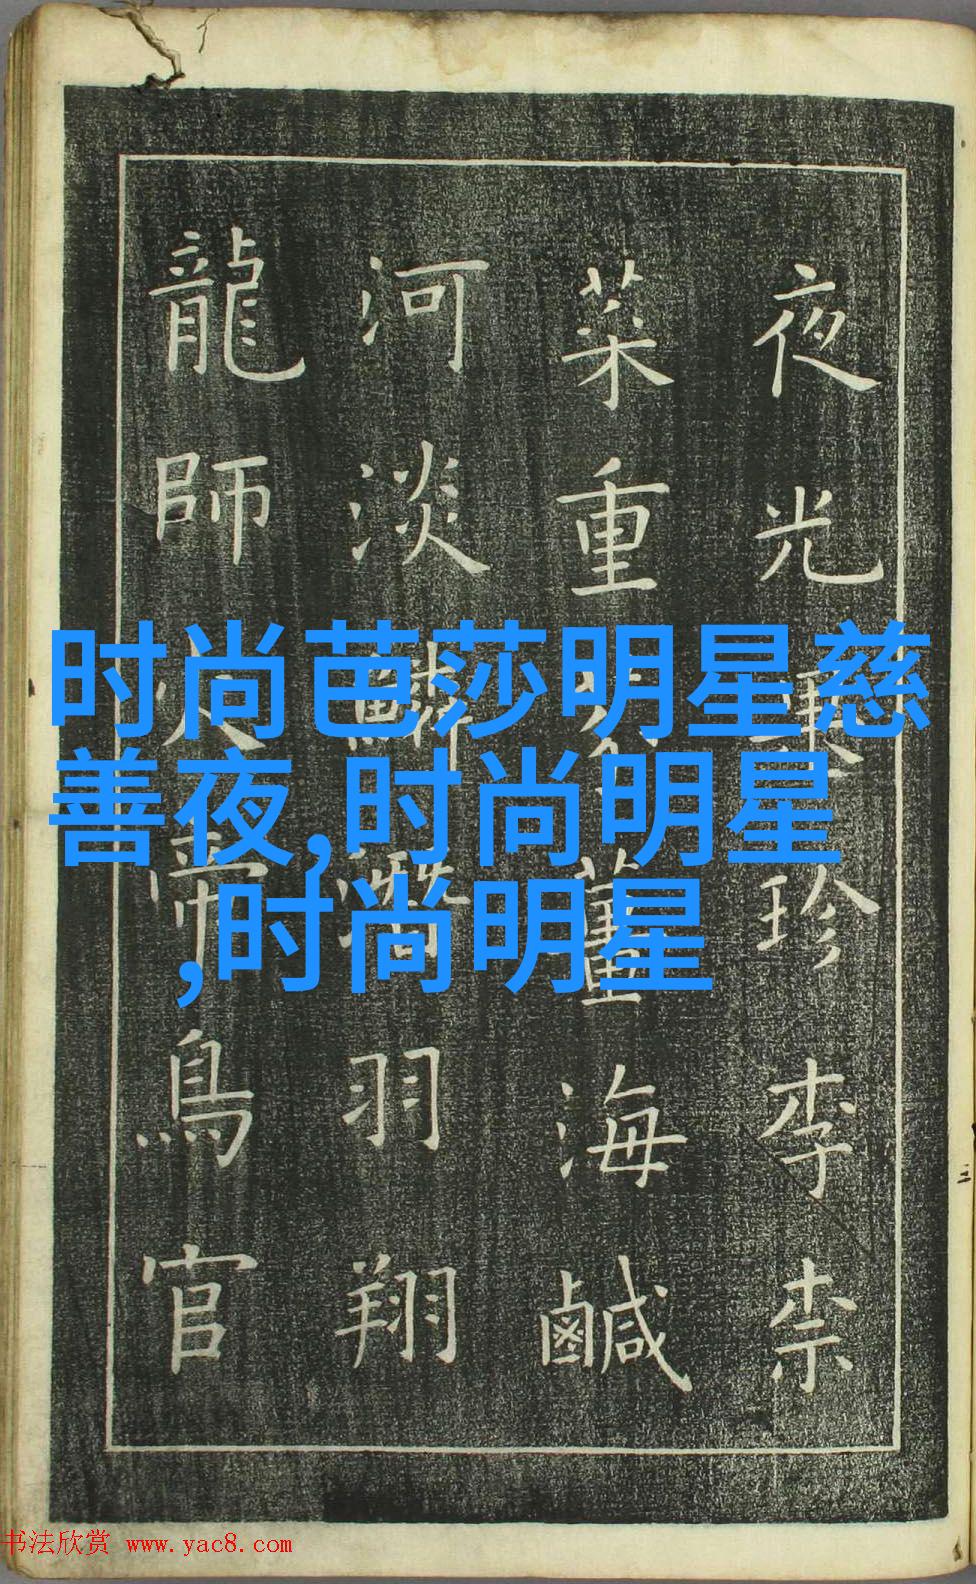 夜光果珍李柰
菜重芥薑海鹹
河淡鱗潛羽翔
龍師火帝鳥官
时尚芭莎明星慈
善夜,时尚明星
,时尚明星
书法欣赏 www.yac8.com